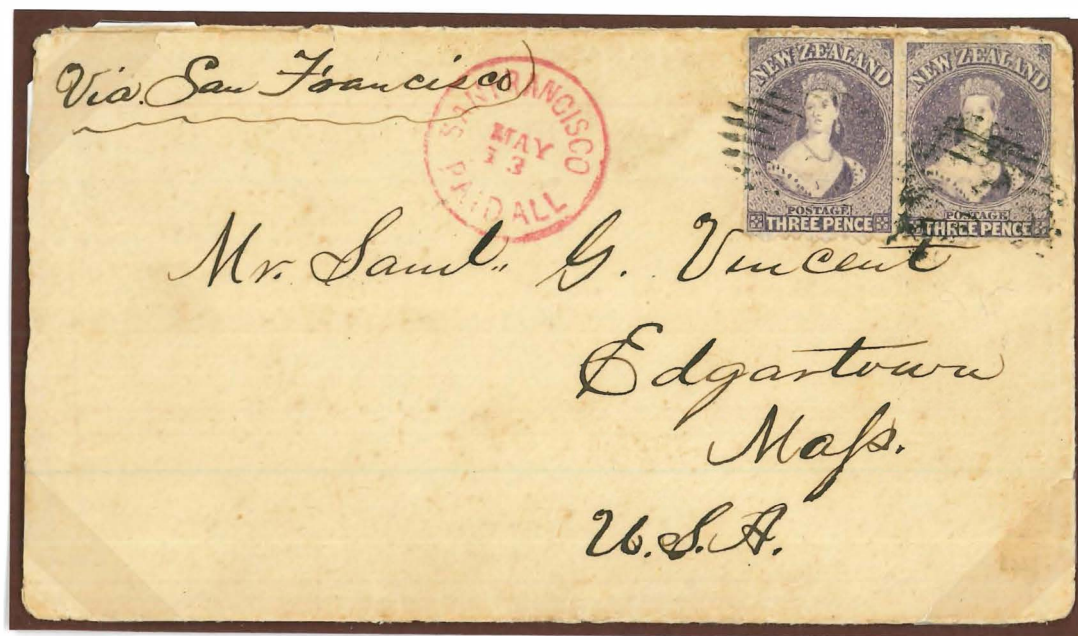 Via. San Francisco
SAN FRANCISCO
MAY
13
PAID ALL
NEW ZEALAND
POSTAGE
THREE PENCE
NEW ZEALAND
POSTAGE
THREE PENCE
Mr. Saml. G. Vincent
Edgartown
Maſs.
U.S.A.